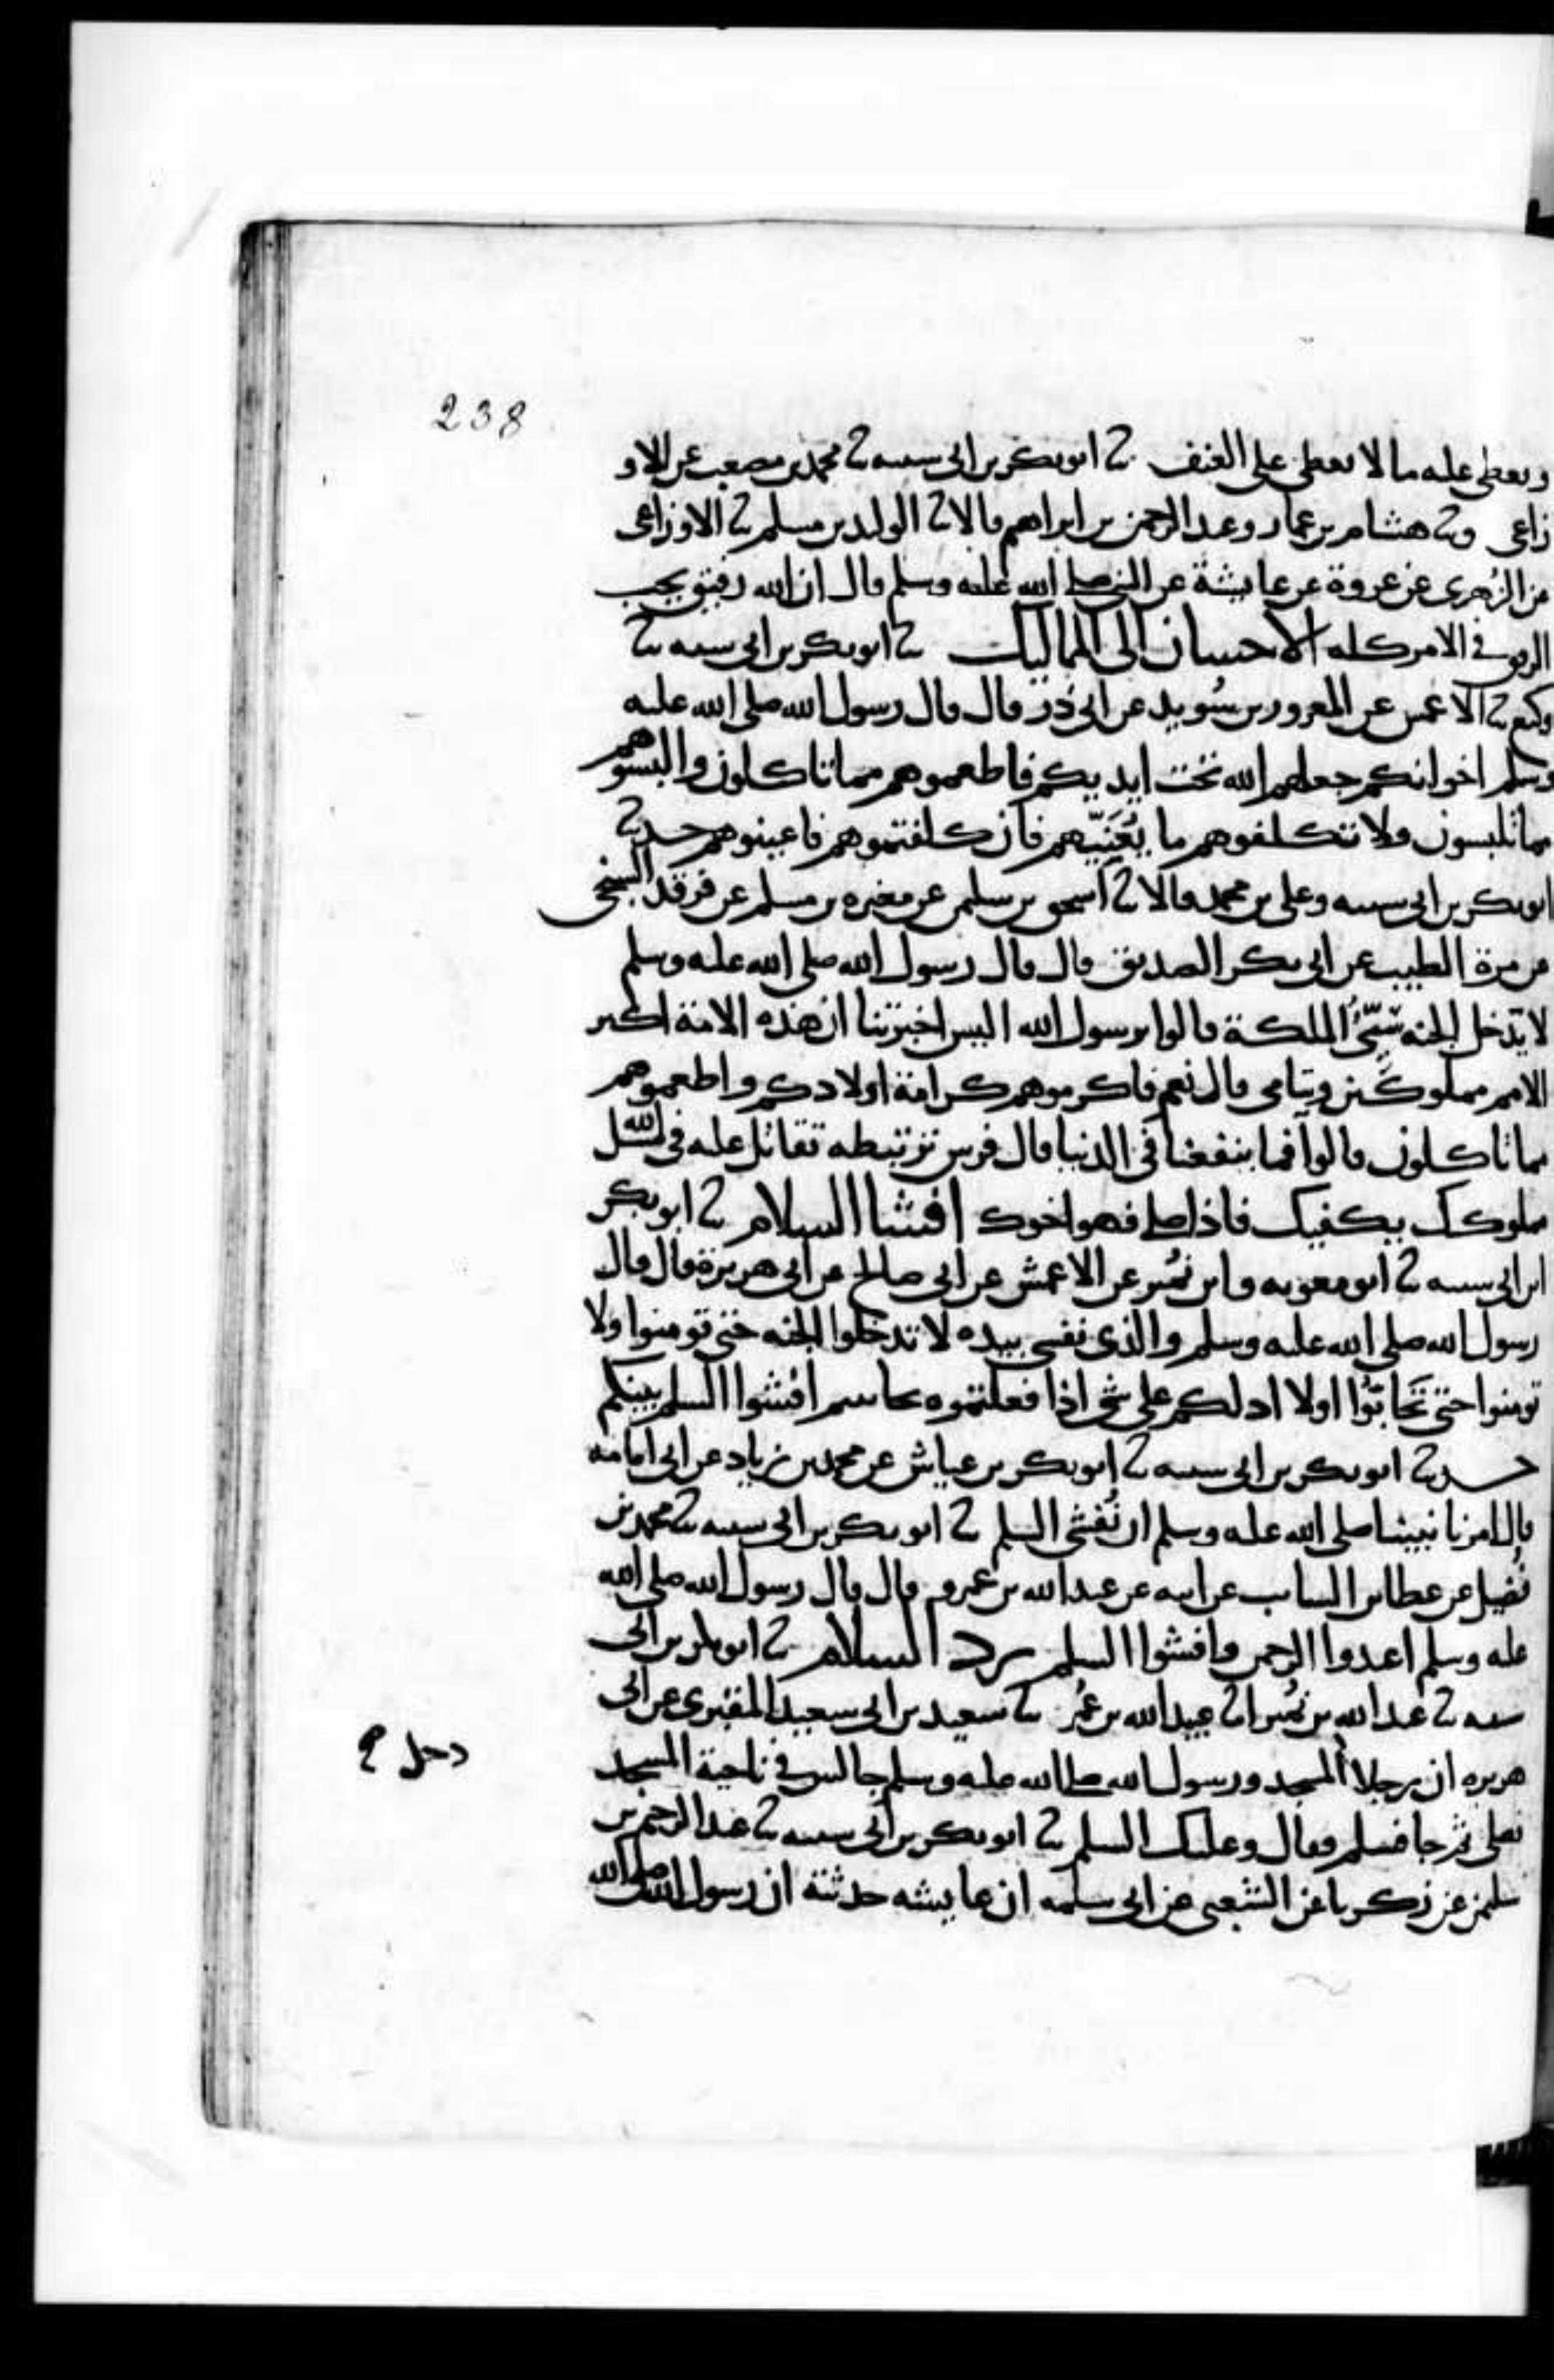 238
ويعطى عليه ما لا يعطى على العنف ثنا ابو بكر بن ابى شيبه ثنا محمد بن مصعب عن الاو
زاعى وثنا هشام بن عمار وعبد الرحمن بن ابراهيم قالا ثنا الوليد بن مسلم ثنا الاوزاعى
عن الزُهرى عن عروة عن عايشة عن النبى صلى الله عليه وسلم قال ان الله رفيق يحب
الرفق فى الامر كله الاحسان الى المماليك ثنا ابو بكر بن ابى شيبه ثنا
وكيع ثنا الاعمش عن المعرور بن سُويد عن ابى ذر قال قال رسول الله صلى الله عليه
وسلم اخوانكم جعلهم الله تحت ايديكم فاطعموهم مما تاكلون والبسوهم
مما تلبسون ولا تكلفوهم ما يُعَنِيّهم فان كلفتموهم فاعينوهم حدثنا
ابو بكر بن ابى شيبه وعلى بن محمد قالا ثنا اسحق بن سليمن عن مغيره بن مسلم عن فرقد السبخى
عن مرة الطيب عن ابى بكر الصديق قال قال رسول الله صلى الله عليه وسلم
لا يدخل الجنه سَيِّئُ الملكة قالوا يرسول الله اليس اخبرتنا ان هذه الامة اكثر
الامم مملوكين ويتامى قال نعم فاكرموهم كرامة اولادكم واطعموهم
مما تاكلون قالوا فما ينفعنا فى الدنيا قال فرس ترتبطه تقاتل عليه فى سبيل الله
مملوكك يكفيك فاذا صلى فهو اخوك افشا السلام ثنا ابو بكر
ابن ابى شيبه ثنا ابو معويه وابن نُمير عن الاعمش عن ابى صالح عن ابى هريرة قال قال
رسول الله صلى الله عليه وسلم والذى نفسى بيده لا تدخلوا الجنه حتى تومنوا ولا
تومنوا حتى تَحَابّوُا اولا ادلكم على شى اذا فعلتموه تحاببتم افشوا السلم بينكم
حدثنا ابو بكر بن ابى شيبه ثنا ابو بكر بن عياش عن محمد بن زياد عن ابى امامه
قال امرنا نبينا صلى الله عليه وسلم ان نُفشى السلم ثنا ابو بكر بن ابى شيبه ثنا محمد بن
فُضيل عن عطا بن السايب عن ابيه عن عبد الله بن عمرو قال قال رسول الله صلى الله
عليه وسلم اعبدوا الرحمن وافشوا السلم رد السلام ثنا ابو بكر بن ابى
شيبه ثنا عبد الله بن نُمير ثنا عبيد الله بن عُمر ثنا سعيد بن ابى سعيد المقبرى عن ابى
هريره ان رجلا المسجد ورسول الله صلى الله عليه وسلم جالس فى ناحية المسجد
دخل
فصلى ثم جا فسلم فقال وعليك السلم ثنا ابو بكر بن ابى شيبه ثنا عبد الرحيم بن
سليمن عن زكريا عن الشعبى عن ابى سلمه ان عايشه حدثته ان رسول الله صلى الله